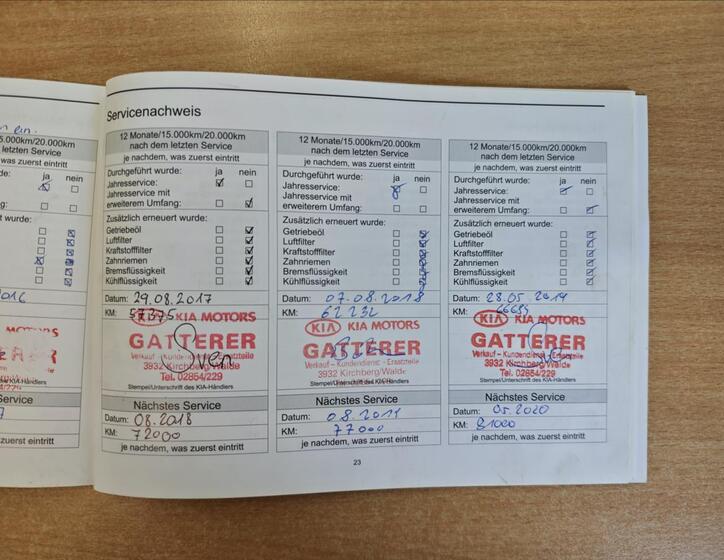 n ein.
5.000km/20.000km
n Service
was zuerst eintritt
de: ja nein
g:
t wurde:
2016
Service
uerst eintritt
Servicenachweis
12 Monate/15.000km/20.000km
nach dem letzten Service
je nachdem, was zuerst eintritt
Durchgeführt wurde: ja nein
Jahresservice:
Jahresservice mit
erweiterem Umfang:
Zusätzlich erneuert wurde:
Getriebeöl
Luftfilter
Kraftstofffilter
Zahnriemen
Bremsflüssigkeit
Kühlflüssigkeit
Datum: 29.08.2017
KM: 57375
KIA KIA MOTORS
GATTERER
Verkauf - Kundendienst - Ersatzteile
3932 Kirchberg/Walde
Tel. 02854/229
Stempel/Unterschrift des KIA-Händlers
Nächstes Service
Datum: 08.2018
KM: 72000
je nachdem, was zuerst eintritt
12 Monate/15.000km/20.000km
nach dem letzten Service
je nachdem, was zuerst eintritt
Durchgeführt wurde: ja nein
Jahresservice:
Jahresservice mit
erweiterem Umfang:
Zusätzlich erneuert wurde:
Getriebeöl
Luftfilter
Kraftstofffilter
Zahnriemen
Bremsflüssigkeit
Kühlflüssigkeit
Datum: 07.08.2018
KM: 62232
KIA KIA MOTORS
GATTERER
Verkauf - Kundendienst - Ersatzteile
3932 Kirchberg/Walde
Stempel/Unterschrift des KIA-Händlers
Nächstes Service
Datum: 08.2019
KM: 77000
je nachdem, was zuerst eintritt
12 Monate/15.000km/20.000km
nach dem letzten Service
je nachdem, was zuerst eintritt
Durchgeführt wurde: ja nein
Jahresservice:
Jahresservice mit
erweiterem Umfang:
Zusätzlich erneuert wurde:
Getriebeöl
Luftfilter
Kraftstofffilter
Zahnriemen
Bremsflüssigkeit
Kühlflüssigkeit
Datum: 28.05.2019
KM:
KIA KIA MOTORS
GATTERER
Verkauf - Kundendienst - Ersatzteile
3932 Kirchberg/Walde
Tel. 02854/229
Stempel/Unterschrift des KIA-Händlers
Nächstes Service
Datum: 05.2020
KM: 81000
je nachdem, was zuerst eintritt
23